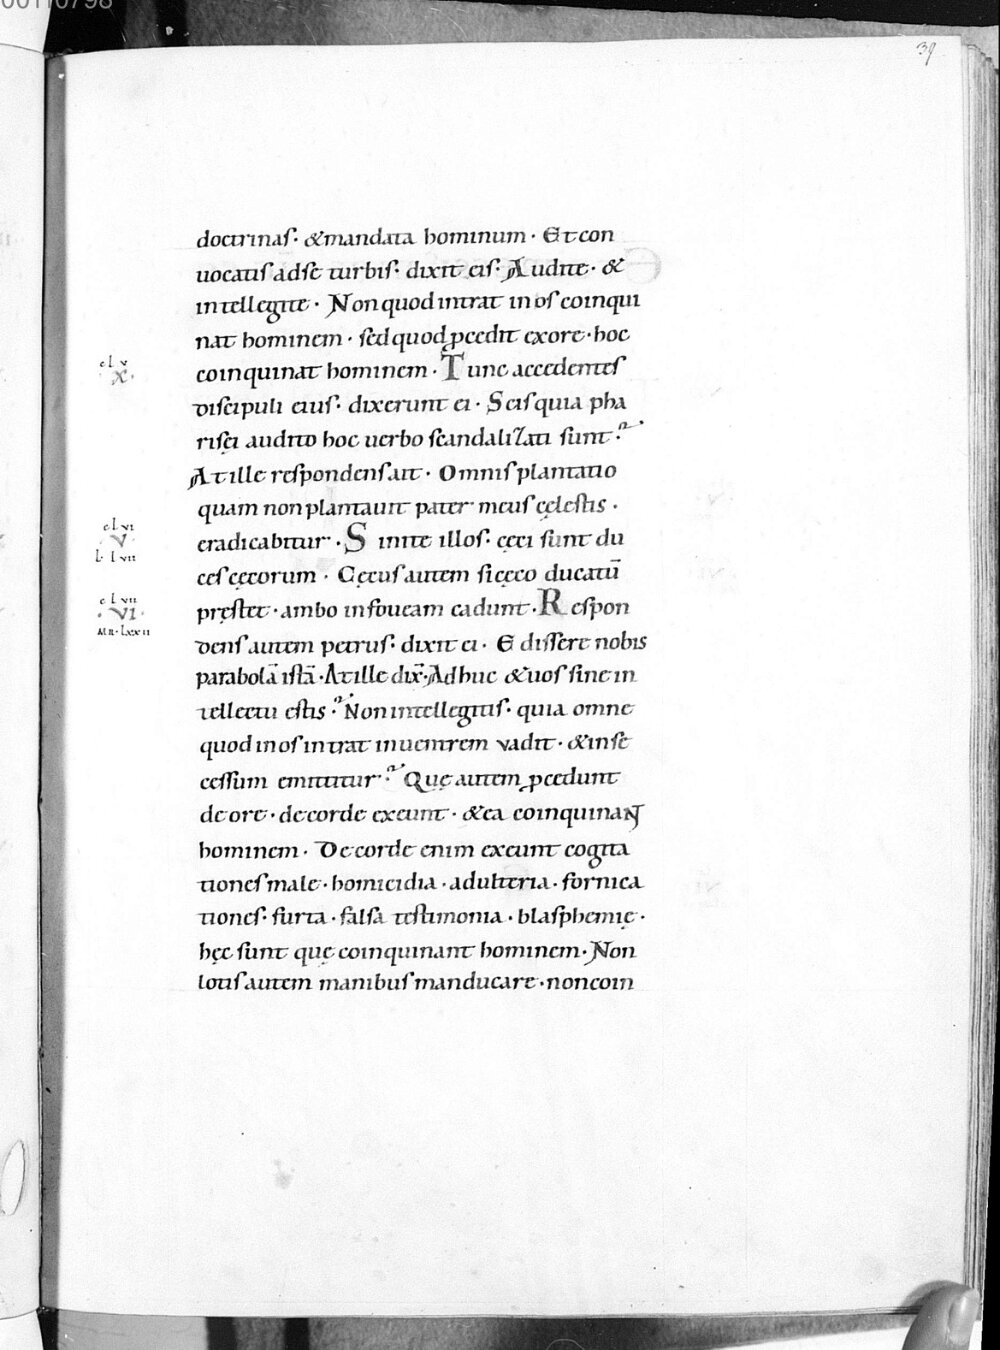 00110798
39
doctrinas· &mandata hominum· Et con
uocatis adse turbis· dixit eis· Audite· &
intellegite· Non quod intrat in os coinqui
nat hominem· sed quod pcedit exore· hoc
clv
·X·
coinquinat hominem· Tunc accedentes
discipuli eius· dixerunt ei· Scis quia pha
risęi audito hoc uerbo scandalizati sunt?
At ille respondens ait· Omnis plantatio
quam non plantauit pater meus cęlestis·
clvi
V
l· lvii
eradicabitur· Sinite illos· cęci sunt du
ces cęcorum· Cęcus autem si cęco ducatū
clvii
·VI·
MR· lxxii
pręstet· ambo in foueam cadunt· Respon
dens autem petrus· dixit ei· Edissere nobis
parabolā istā· At ille dix̄· Adhuc &uos sine in
tellectu estis? Non intellegitis· quia omne
quod in os intrat inuentrem vadit· &inse
cessum emittitur? Quę autem pcedunt
de ore· decorde exeunt· &ea coinquinaN
hominem· De corde enim exeunt cogita
tiones male· homicidia· adulteria· fornica
tiones· furta· falsa testimonia· blasphemię·
hęc sunt quę coinquinant hominem· Non
lotis autem manibus manducare· noncoin